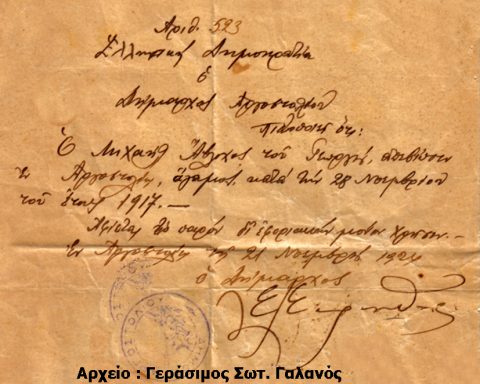 Αριθ. 523
Ελληνική Δημοκρατία
ο
Δήμαρχος Αργοστολίου
Πιστοποιεί ότι:
Ο Μιχαήλ του Γεωργίου, απεβίωσεν
εν Αργοστολίω, άγαμος, κατά την 28 Νοεμβρίου
του έτους 1917.—
το παρόν χρήσιν.—
Εν Αργοστολίω τη 21 Νοεμβρίου 1924
ο Δήμαρχος
Αρχείο : Γεράσιμος Σωτ. Γαλανός